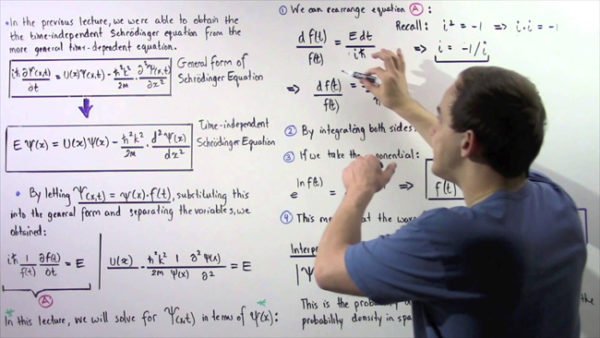 • In the previous lecture, we were able to obtain the
the time-independent Schrödinger equation from the
more general time-dependent equation.
iħ ∂Ψ(x,t)/∂t = U(x)Ψ(x,t) - ħ²k²/2m · ∂²Ψ(x,t)/∂x²
General form of
Schrödinger Equation
E ψ(x) = U(x)ψ(x) - ħ²k²/2m · d²ψ(x)/dx²
Time-independent
Schrödinger Equation
• By letting Ψ(x,t) = ψ(x)·f(t), substituting this
into the general form and separating the variables, we
obtained:
iħ 1/f(t) ∂f(t)/∂t = E | U(x) - ħ²k²/2m 1/ψ(x) ∂²ψ(x)/∂² = E
A
In this lecture, we will solve for Ψ(x,t) in terms of ψ(x):
① We can rearrange equation A:
Recall: i² = -1 => i·i = -1
df(t)/f(t) = E dt/iħ
=> i = -1/i
=> df(t)/f(t) =
② By integrating both sides
③ If we take the exponential:
e^ln f(t) => f(t)
④ This
Interp
|Ψ
This is the probability
the
probability density in spa